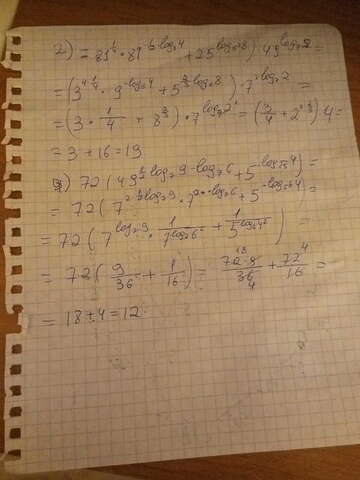 2) = 81^{1/4} · 81^{-1/2 log_9 4} + 25^{log_{125} 8}) · 49^{log_7 2} =
= (3^{4·1/4} · 9^{-log_9 4} + 5^{2/3 log_5 8}) · 7^{2 log_7 2} =
= (3 · 1/4 + 8^{2/3}) · 7^{log_7 2^2} = (3/4 + 2^{3·2/3}) · 4 =
= 3 + 16 = 19
72 (49^{1/2 log_7 9 - log_7 6} + 5^{-log_{√5} 4}) =
= 72 (7^{2·1/2 log_7 9} · 7^{-2·log_7 6} + 5^{-log_5 4}) =
= 72 (7^{log_7 9} · 1/7^{log_7 6^2} + 1/5^{log_5 4^2}) =
= 72 (9/36 + 1/16) = 72·9/36 + 72/16 =
= 18 + 4 = 12